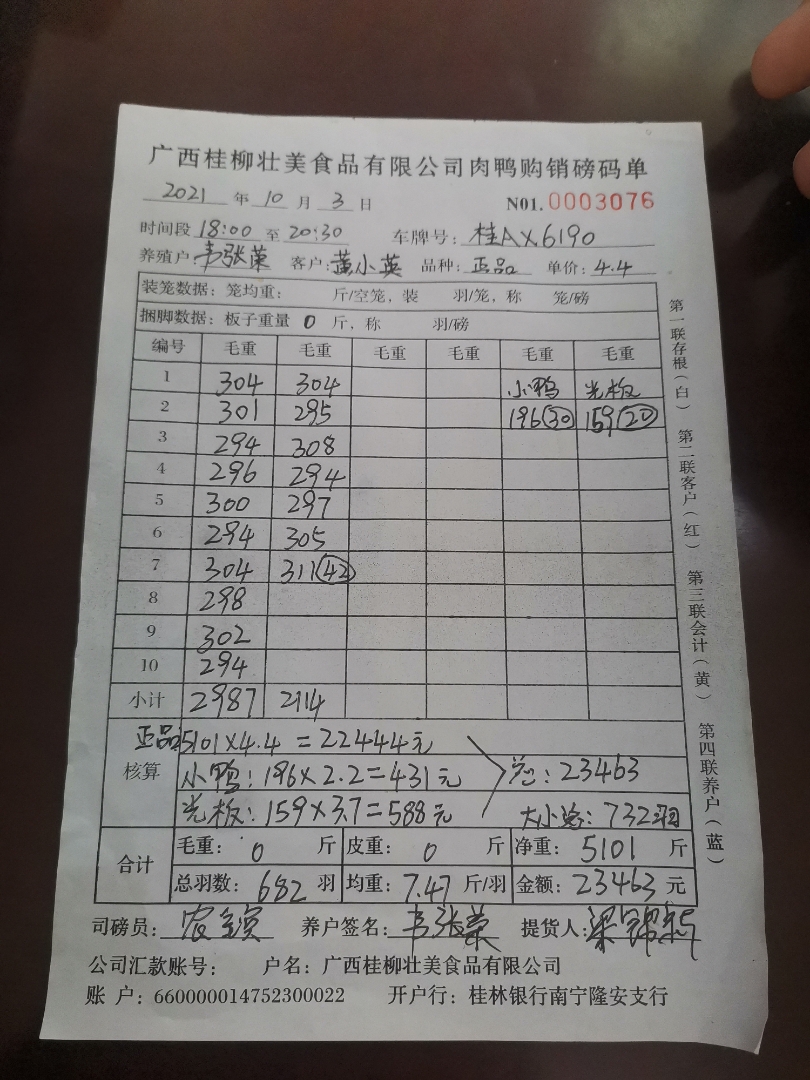 广西桂柳壮美食品有限公司肉鸭购销磅码单
2021 年 10 月 3 日 N01. 0003076
时间段 18:00 至 20:30 车牌号: 桂AX6190
养殖户: 韦张荣 客户: 黄小英 品种: 正品 单价: 4.4
装笼数据: 笼均重: 斤/空笼, 装 羽/笼, 称 笼/磅
捆脚数据: 板子重量 0 斤, 称 羽/磅
编号 毛重 毛重 毛重 毛重 毛重 毛重
1 304 304 小鸭 光板
2 301 295 196(30) 159(20)
3 294 308
4 296 294
5 300 297
6 294 305
7 304 311(42)
8 298
9 302
10 294
小计 2987 2114
核算
正品:5101×4.4=22444元
小鸭:196×2.2=431元 总:23463
光板:159×3.7=588元 大小总:732羽
合计
毛重: 0 斤 皮重: 0 斤 净重: 5101 斤
总羽数: 682 羽 均重: 7.47 斤/羽 金额: 23463 元
司磅员: 养户签名: 韦张荣 提货人:
公司汇款账号: 户名: 广西桂柳壮美食品有限公司
账 户: 660000014752300022 开户行: 桂林银行南宁隆安支行
第一联存根(白) 第二联客户(红) 第三联会计(黄) 第四联养户(蓝)